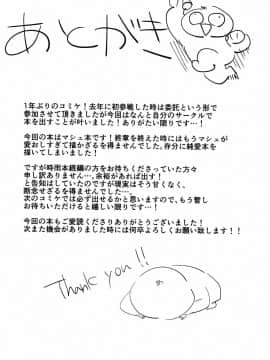 あとがき
1年ぶりのコミケ！去年に初参戦した時は委託という形で
参加させて頂きましたが今回はなんと自分のサークルで
本を出すことが叶いました！ありがたい限りです…！
今回の本はマシュ本です！終章を終えた時にはもうマシュが
愛おしすぎて描かざるを得ませんでした、存分に純愛本を
描いてしまいました！
ですが時雨本続編の方をお待ちくださっていた方々
申し訳ありません…、余裕があれば出す！
と告知はしていたのですが現実はそう甘くなく、
断念せざるを得ませんでした…、
次のコミケでは必ず出せるかと思いますので、もう暫し
お待ちいただけると嬉しい限りです…！
今回の本もご愛読くださりありがとうございました！
次また機会がありました時には何卒よろしくお願い致します！！
Thank you!!